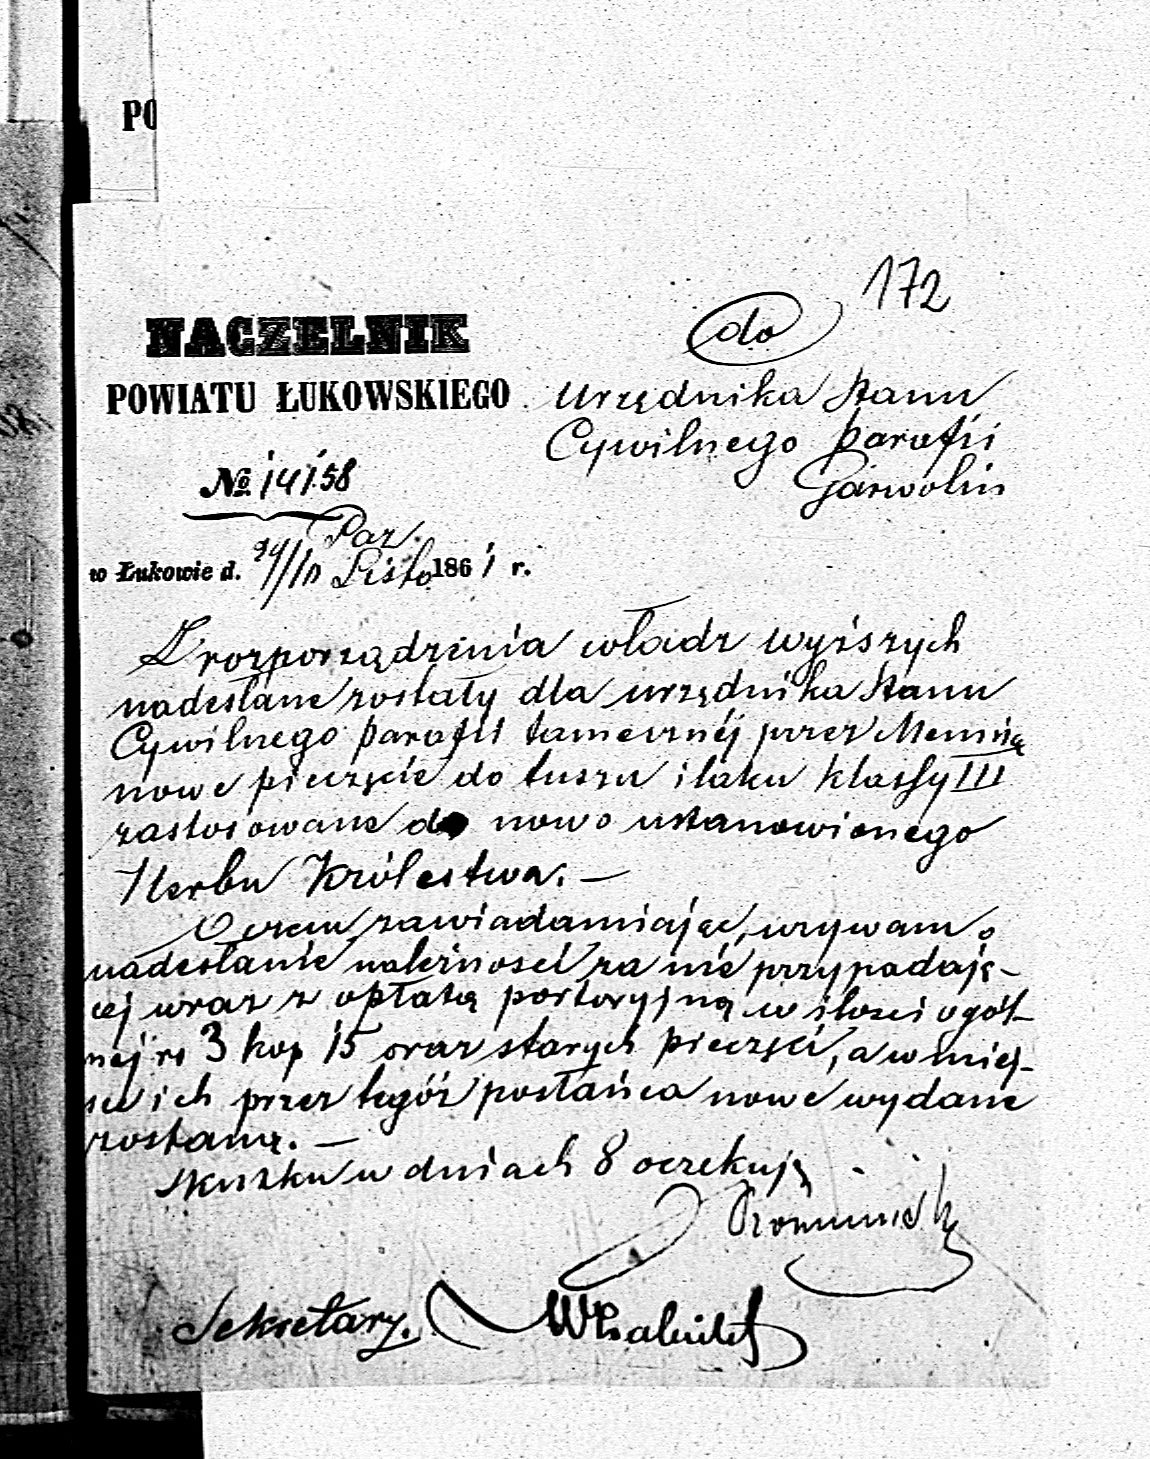 PO
172
NACZELNIK
POWIATU ŁUKOWSKIEGO
do
Urzędnika Stanu
Cywilnego parafii
Garwolin
№ 14158
Paz.
w Łukowie d. /10 Listo 1861 r.
Z rozporządzenia władz wyższych
nadesłane zostały dla urzędnika Stanu
Cywilnego parafii tamecznéj przez Mennicę
nowe pieczęcie do tuszu i laku klassy III
zastosowane do nowo ustanowionego
Herbu Królestwa. —
O czem zawiadamiając, wzywam o
nadesłanie należności za nie przypadają-
cej wraz z opłatą portoryjną w ilości ogól-
nej rs 3 kop 15 oraz starych pieczęci, a w miej-
sce ich przez tegóż posłańca nowe wydane
zostaną. —
Skutku w dniach 8 oczekuję
Sekretarz.